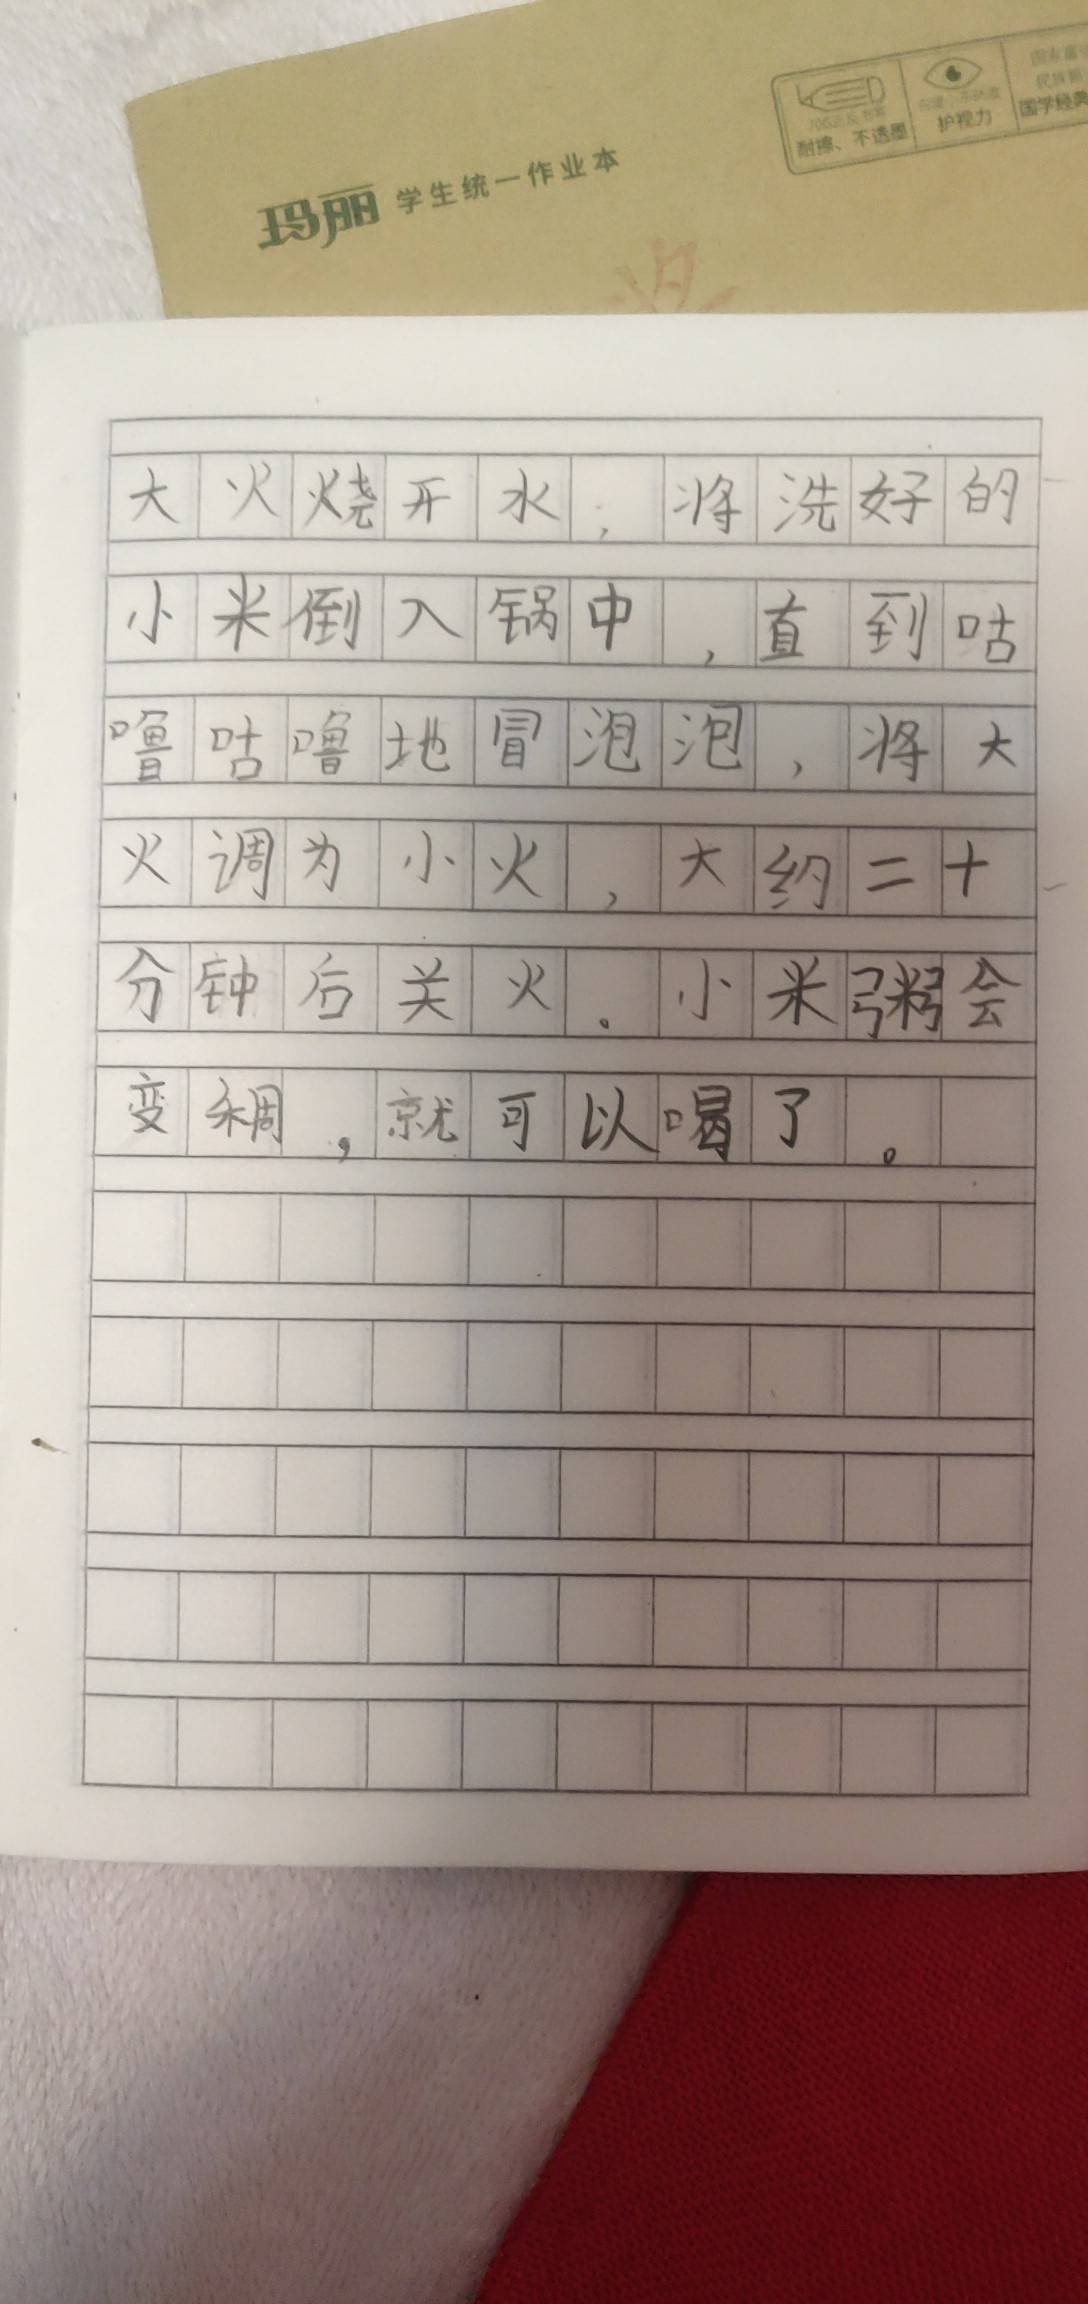 玛丽 学生统一作业本
耐擦、不透墨
护视力
国学经典
大火烧开水，将洗好的
小米倒入锅中，直到咕
噜咕噜地冒泡泡，将大
火调为小火，大约二十
分钟后关火。小米粥会
变稠，就可以喝了。